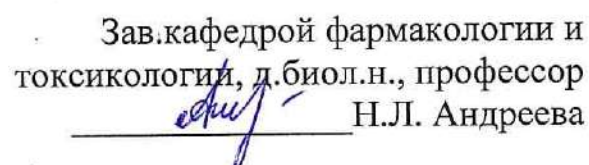 Зав.кафедрой фармакологии и
токсикологии, д.биол.н., профессор
Н.Л. Андреева